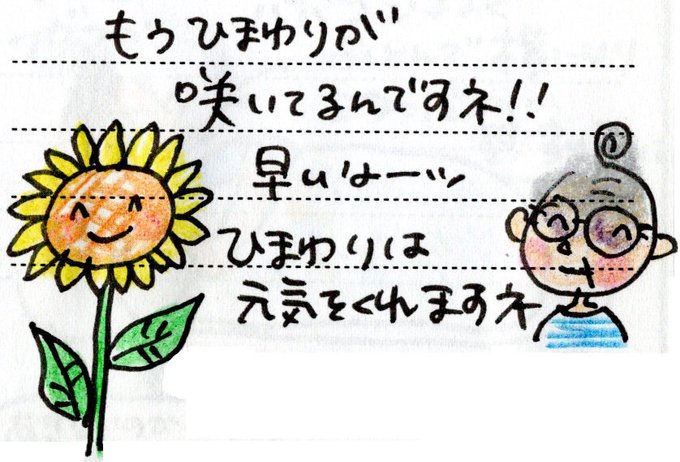 もうひまわりが
咲いてるんですネ!!
早いなーッ
ひまわりは
元気をくれますネ